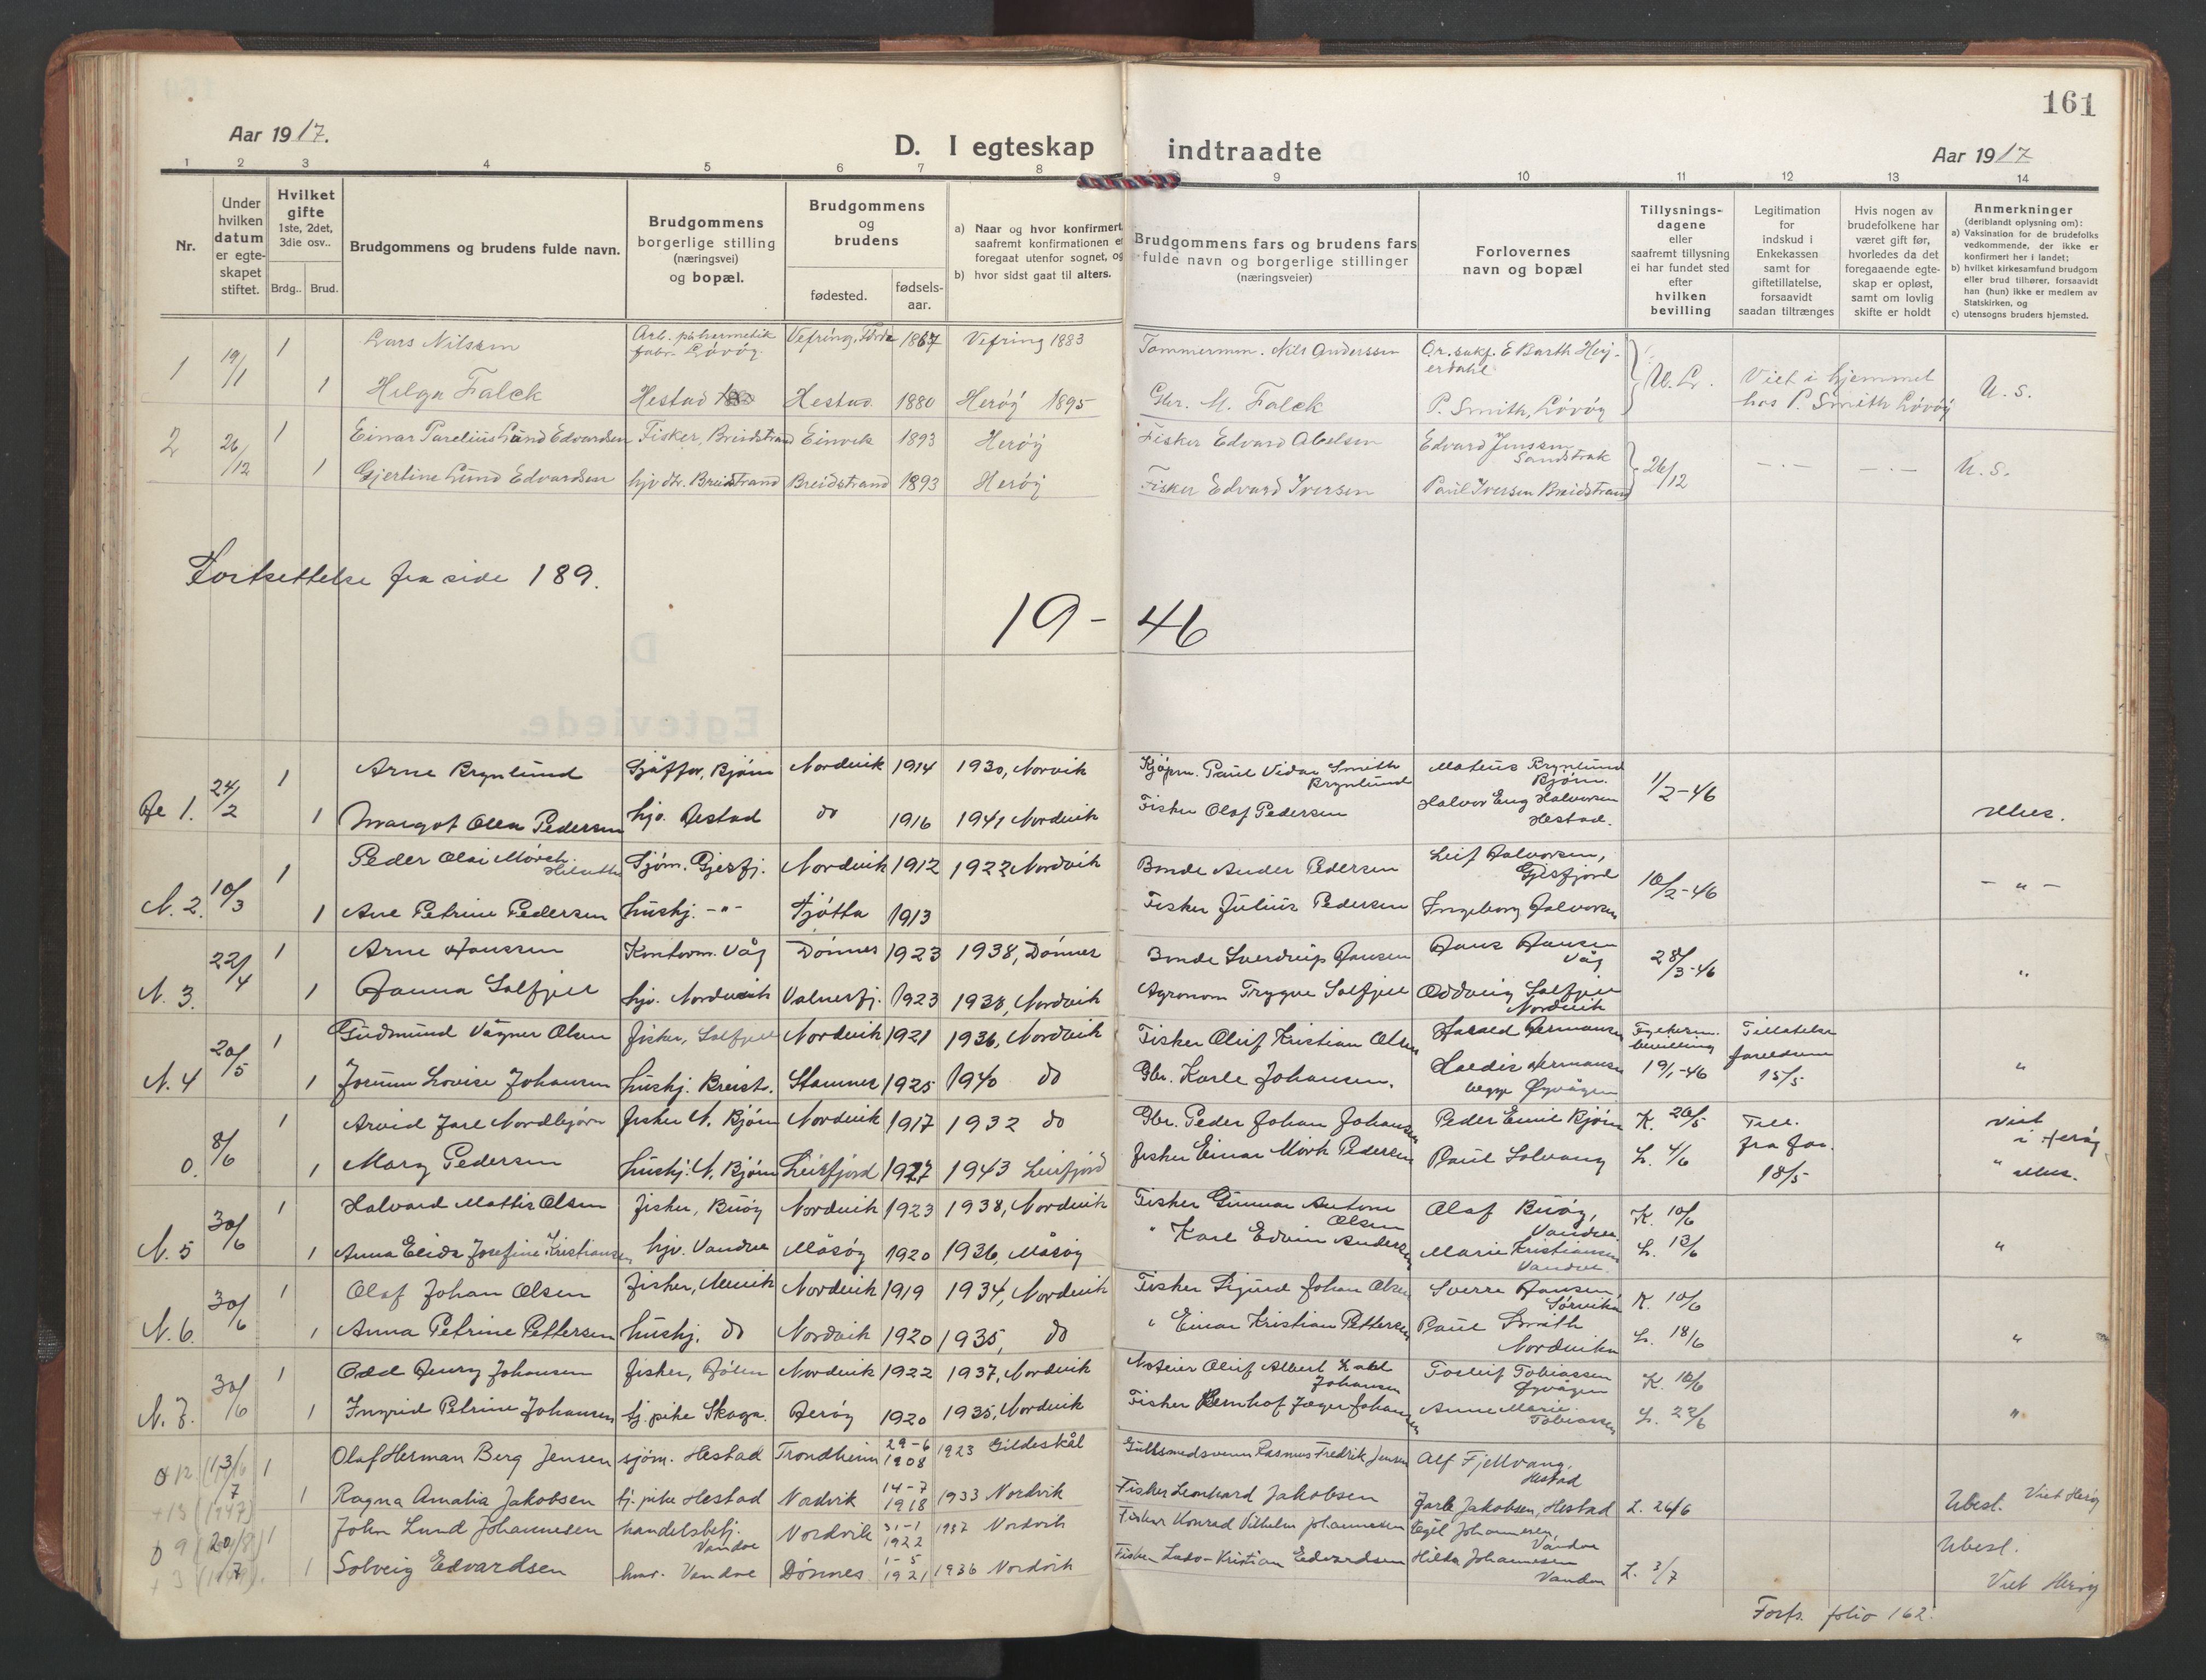 161
Aar 1917.
D. I egteskap indtraadte
Aar 1917
1 2 3 4 5 6 7 8 9 10 11 12 13 14
Nr.
Under hvilken datum er egteskapet stiftet.
Hvilket gifte 1ste, 2det, 3die osv..
Brdg.. Brud.
Brudgommens og brudens fulde navn.
Brudgommens borgerlige stilling (næringsvei) og bopæl.
Brudgommens og brudens
fødested.
fødsels-aar.
a) Naar og hvor konfirmert saafremt konfirmationen foregaat utenfor sognet, og
b) hvor sidst gaat til alters.
Brudgommens fars og brudens fars fulde navn og borgerlige stillinger (næringsveier)
Forlovernes navn og bopæl
Tillysnings-dagene eller saafremt tillysning ei har fundet sted efter hvilken bevilling
Legitimation for indskud i Enkekassen samt for giftetillatelse, forsaavidt saadan tiltrænges
Hvis nogen av brudefolkene har været gift før, hvorledes da det foregaaende egteskap er opløst, samt om lovlig skifte er holdt
Anmerkninger (deriblandt oplysning om):
a) Vaksination for de brudefolks vedkommende, der ikke er konfirmert her i landet;
b) hvilket kirkesamfund brudgom eller brud tilhører, forsaavidt han (hun) ikke er medlem av Statskirken, og
c) utensogns bruders hjemsted.
1 19/11 1 Lars Nilsen Arb. på hermetik fabr. Løvøy. Vefring, 1867 Vefring 1883 Tømmermn. Nils Anderssen E Barth
1 Helga Falck Hestad Hestad 1880 Herøy 1895 Gbr. M. Falck P. Smith, Løvøy Viet i hjemmet hos P. Smith Løvøy U. S.
2 26/12 1 Einar Parelius Lund Edvardsen Fisker, Breidstrand Einvik 1893 Herøy Fisker Edvard Abelsen Edvard Jenssen Sandstrak
1 Gjertine Lund Edvardsen hjv. dtr. Breidstrand Breidstrand 1893 Herøy Fisker Edvard Iversen Paul Iversen Breidstrand 26/12 — · — — · — U. S.
Fortsettelse fra side 189.
19 - 46
1. 24/2 1 Arne Brynlund Bjørn Nordvik 1914 1930, Norvik Kjøpm. Paul Vidar Smith Brynlund Mateus Brynlund Bjørn. 1/2-46
1 Margot Olea Pedersen hjv. Hestad do 1916 1941 Nordvik Fisker Olaf Pedersen Halvor Eng Halvorsen Hestad.
N. 2. 10/3 1 Peder Olai Mörch Sjøm. Gjesfj. Nordvik 1912 1922 Nordvik Bonde Ander Pedersen Leif Halvorsen, Gjesfjord 10/2-46 — " —
1 Ane Petrine Pedersen hushj. -"- Tjøtta 1913 Fisker Julius Pedersen Ingeborg Halvorsen
N. 3. 22/4 1 Arne Hanssen Kontorm. Våg Dønnes 1923 1938, Dønnes Bonde Sverdrup Hansen Hans Hansen Våg 28/3-46 "
1 Hanna Solfjell hjv. Nordvik Valnesfj. 1923 1938, Nordvik Agronom Trygve Solfjell Oddveig Solfjell Nordvik
N. 4 20/5 1 Gudmund Vågner Olsen fisker, Solfjell Nordvik 1921 1936, Nordvik Fisker Oluf Kristian Olsen Harald Hermansen Fylkesm. bevilling Tillatelse foreldrene
1 Jorunn Lovise Johansen hushj. Breist. Stamnes 1925 1940 do Gbr. Karle Johansen. Haldis Hermansen begge Øyvågen 19/1-46 15/5 "
0. 8/6 1 Arvid Jarl Nordbjørn fisker N. Bjørn Nordvik 1917 1932 do Gbr. Peder Johan Johansen Peder Emil Bjørn K. 20/5 Till. fra far. viet i Herøy
1 Mary Pedersen hushj. N. Bjørn Leirfjord 1927 1943 Leirfjord fisker Einar Mörk Pedersen Paul Solvang L. 4/6 18/5
N. 5 30/6 1 Halvard Mattis Olsen fisker, Buøy Nordvik 1923 1938, Nordvik Fisker Gunnar Antoni Olsen Olaf Buøy, Vandve K. 10/6
1 Anna Elida Josefine Kristiansen hjv. Vandve Måsøy 1920 1936, Måsøy " Karl Edvin Andersen Marie Kristiansen Vandve. L. 13/6 "
N. 6. 30/6 1 Olaf Johan Olsen fisker, Nordvik 1919 1934, Nordvik Fisker Sigurd Johan Olsen Sverre Hansen, Sørvika K. 10/6
1 Anna Petrine Pettersen hushj. do Nordvik 1920 1935, do " Einar Kristian Pettersen Paul Smith Nordvika L. 18/6 "
N. 7. 30/6 1 Odd Henry Johansen fisker, Nordvik 1922 1937, Nordvik Oluf Albert Johansen Torleif Tobiassen Øyvågen K. 10/6
1 Ingrid Petrine Johansen tj. pike Skaga. Herøy 1920 1935, Nordvik Fisker Bernhof Jæger Johansen Anne Marie Tobiassen L. 22/6 "
12. 13/7 1 Olaf Herman Berg Jensen sjøm. Hestad Trondheim 29-6 1908 1923 Gildeskål Gullsmedsvenn Rasmus Fredrik Jensen Alf Fjellvang, Hestad
1 Ragna Amalia Jakobsen tj. pike Hestad Nordvik 14-7 1918 1933 Nordvik Fisker Leonhard Jakobsen Jarle Jakobsen, Hestad L. 26/6 Ubesl. Viet Herøy
9 20/7 1 John Lund Johannesen handelsbetj. Vandve Nordvik 31-1 1922 1937 Nordvik Fisker Konrad Vilhelm Johannesen Egil Johannesen, Vandve Ubesl.
1 Solveig Edvardsen Vandve Dønnes 1-5 1921 1936 Nordvik Fisker Lado-Kristian Edvardsen Hilda Johannesen Vandve L. 3/7 Viet Herøy
Forts. folio 162.